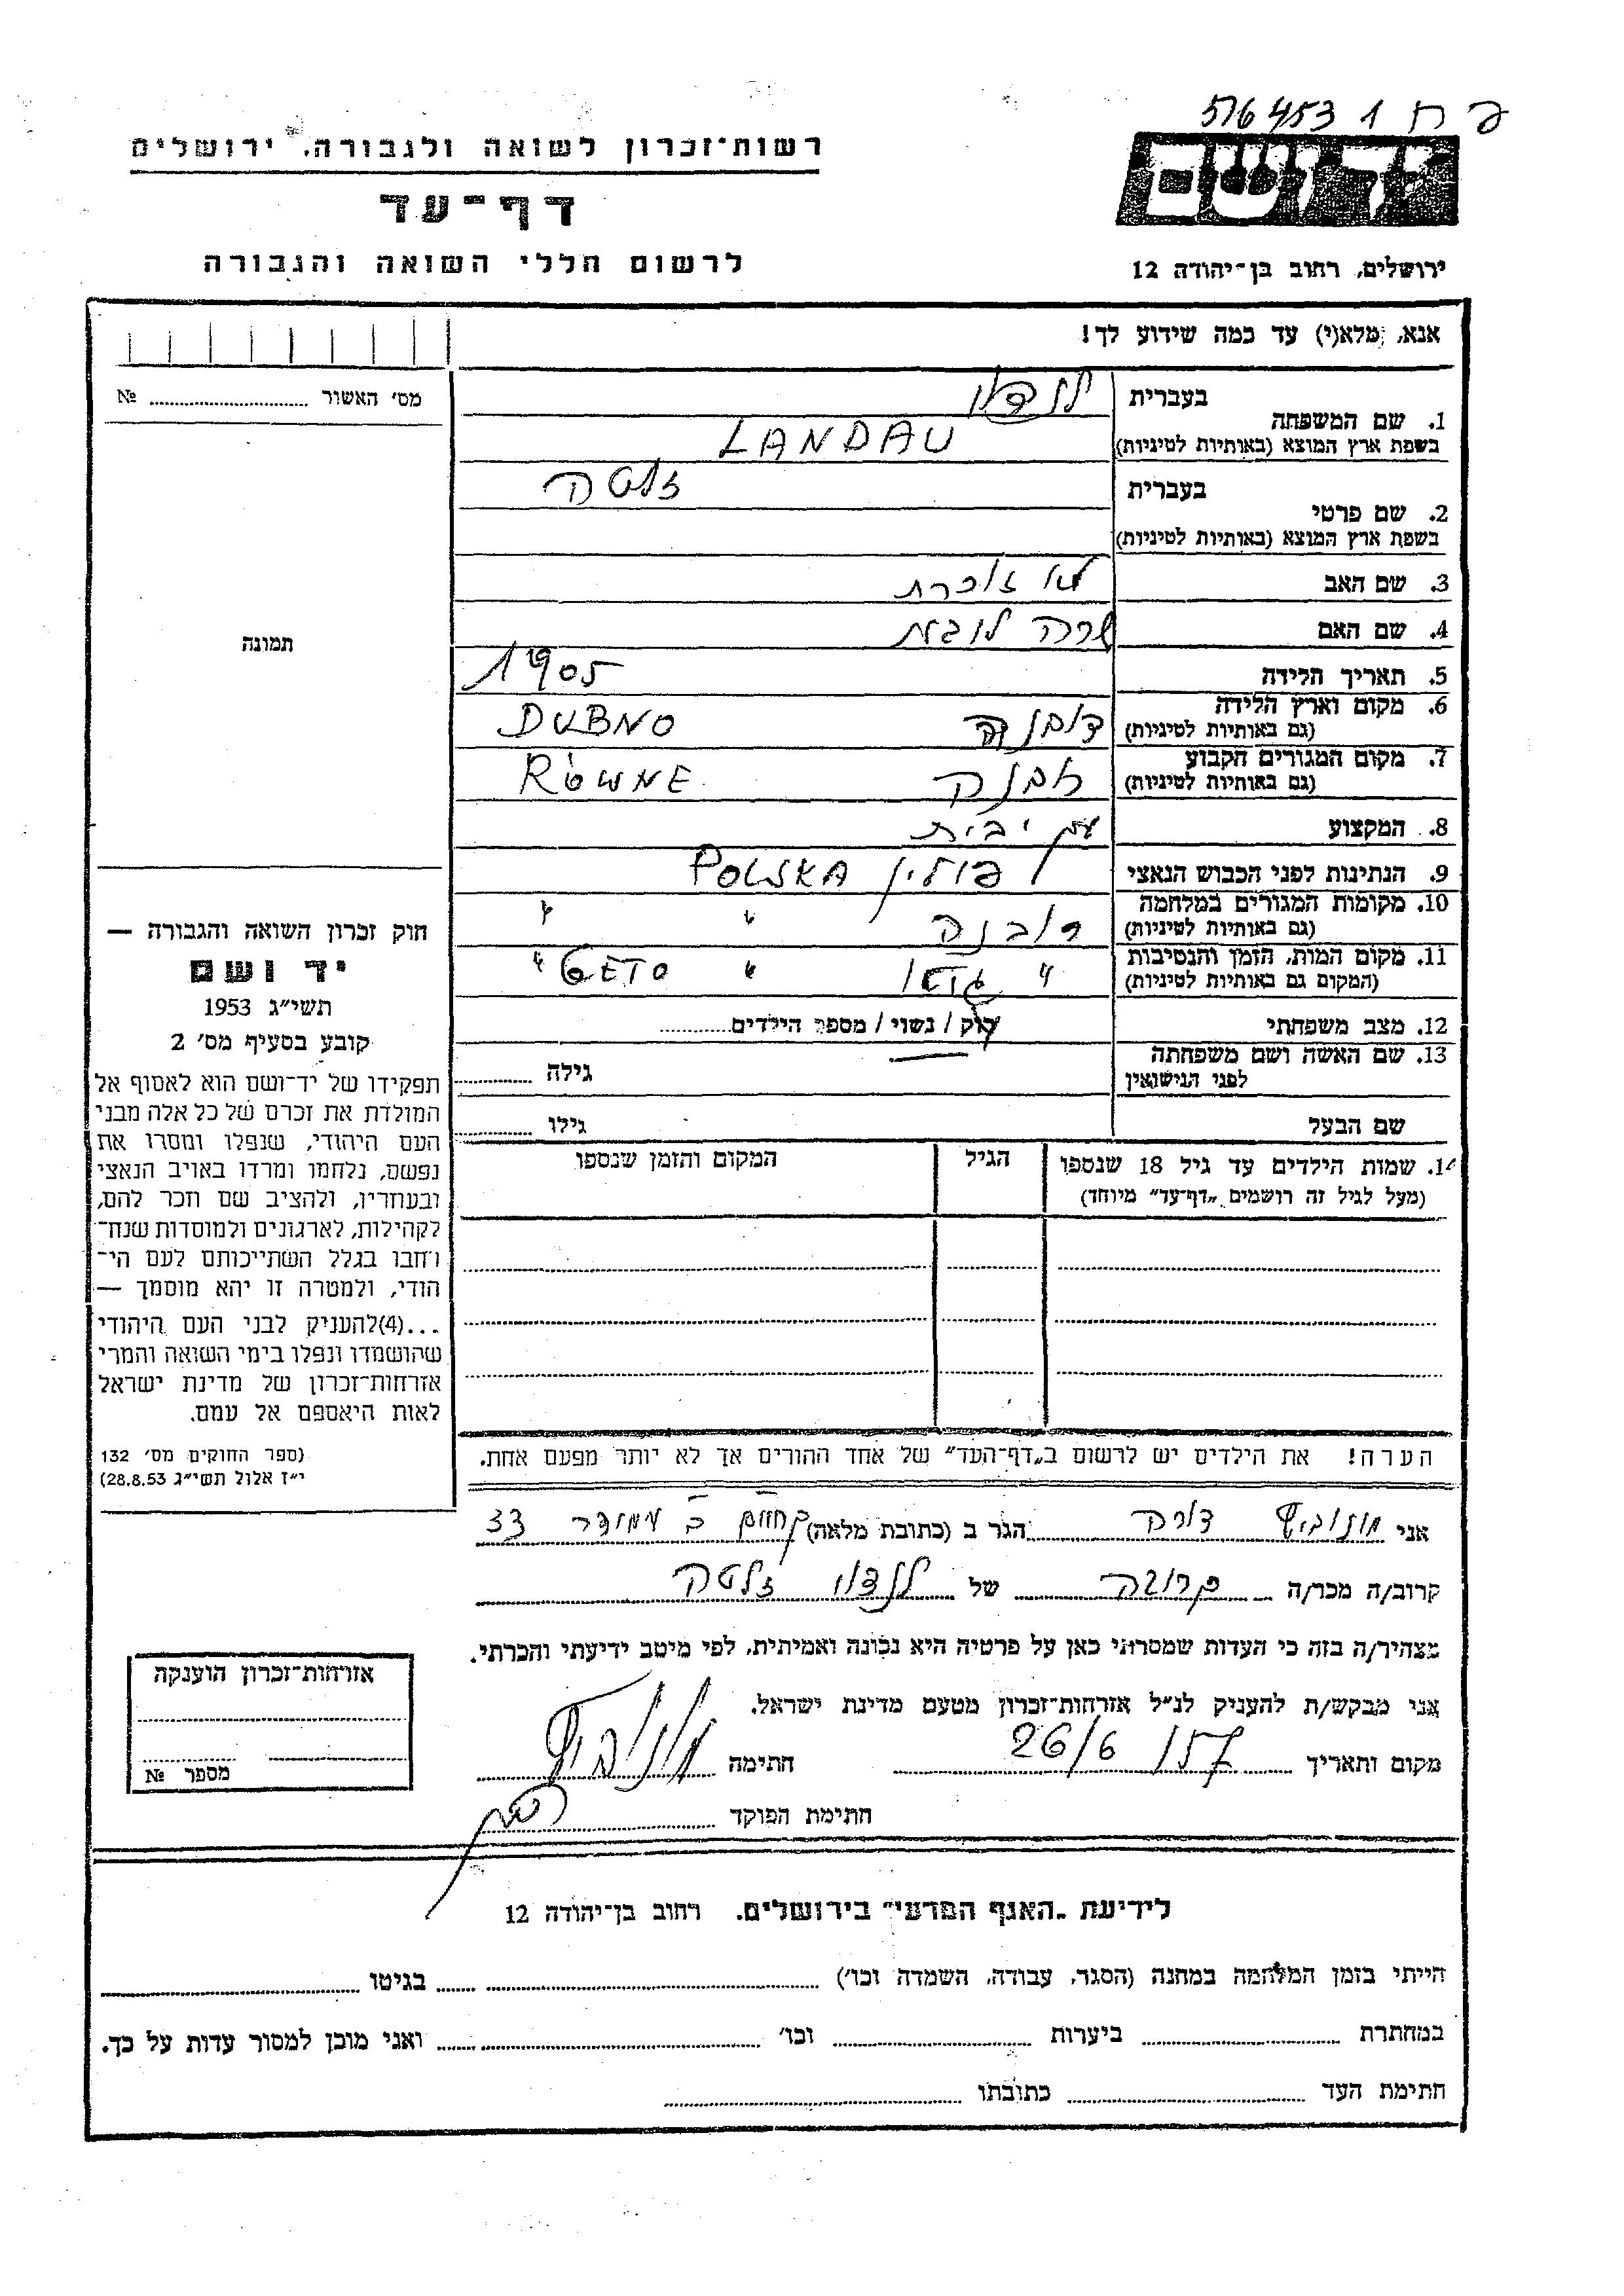 פ ח 1 516453
יד ושם
רשות־זכרון לשואה ולגבורה, ירושלים
דף־עד
לרשום חללי השואה והגבורה
ירושלים, רחוב בן־יהודה 12
אנא, מלא(י) עד כמה שידוע לך!
מס׳ האשור № 
בעברית לנדאו
1. שם המשפחה
בשפת ארץ המוצא (באותיות לטיניות) LANDAU
בעברית זלטה
2. שם פרטי
בשפת ארץ המוצא (באותיות לטיניות)
3. שם האב לא זוכרת
4. שם האם שרה
5. תאריך הלידה 1905
6. מקום וארץ הלידה
(גם באותיות לטיניות) דובנה DUBNO
7. מקום המגורים הקבוע
(גם באותיות לטיניות) רובנה RÓWNE
8. המקצוע
9. הנתינות לפני הכבוש הנאצי פולין POLSKA
10. מקומות המגורים במלחמה
(גם באותיות לטיניות) רובנה " "
11. מקום המות, הזמן והנסיבות
(המקום גם באותיות לטיניות) " גטו " GETO "
12. מצב משפחתי רוק / נשוי / מספר הילדים
13. שם האשה ושם משפחתה
לפני הנישואין גילה
שם הבעל גילו
14. שמות הילדים עד גיל 18 שנספו הגיל המקום והזמן שנספו
(מעל לגיל זה רושמים „דף־עד" מיוחד)
הערה! את הילדים יש לרשום ב„דף־העד" של אחד ההורים אך לא יותר מפעם אחת.
תמונה
חוק זכרון השואה והגבורה —
יד ושם
תשי״ג 1953
קובע בסעיף מס׳ 2
תפקידו של יד־ושם הוא לאסוף אל
המולדת את זכרם של כל אלה מבני
העם היהודי, שנפלו ומסרו את
נפשם, נלחמו ומרדו באויב הנאצי
ובעוזריו, ולהציב שם וזכר להם,
לקהילות, לארגונים ולמוסדות שנח־
רבו בגלל השתייכותם לעם הי־
הודי, ולמטרה זו יהא מוסמך —
...(4)להעניק לבני העם היהודי
שהושמדו ונפלו בימי השואה והמרי
אזרחות־זכרון של מדינת ישראל
לאות היאספם אל עמם.
(ספר החוקים מס׳ 132
י״ז אלול תשי״ג 28.8.53)
אני דורה הגר ב (כתובת מלאה) 33
קרוב/ה מכר/ה קרובה של לנדאו זלטה
מצהיר/ה בזה כי העדות שמסרתי כאן על פרטיה היא נכונה ואמיתית, לפי מיטב ידיעתי והכרתי.
אני מבקש/ת להעניק לנ״ל אזרחות־זכרון מטעם מדינת ישראל.
מקום ותאריך 26/6 חתימה
חתימת הפוקד
אזרחות־זכרון הוענקה
מספר №
לידיעת „האגף המדעי" בירושלים, רחוב בן־יהודה 12
הייתי בזמן המלחמה במחנה (הסגר, עבודה, השמדה וכו׳) בגיטו
במחתרת ביערות וכו׳ ואני מוכן למסור עדות על כך.
חתימת העד כתובתו